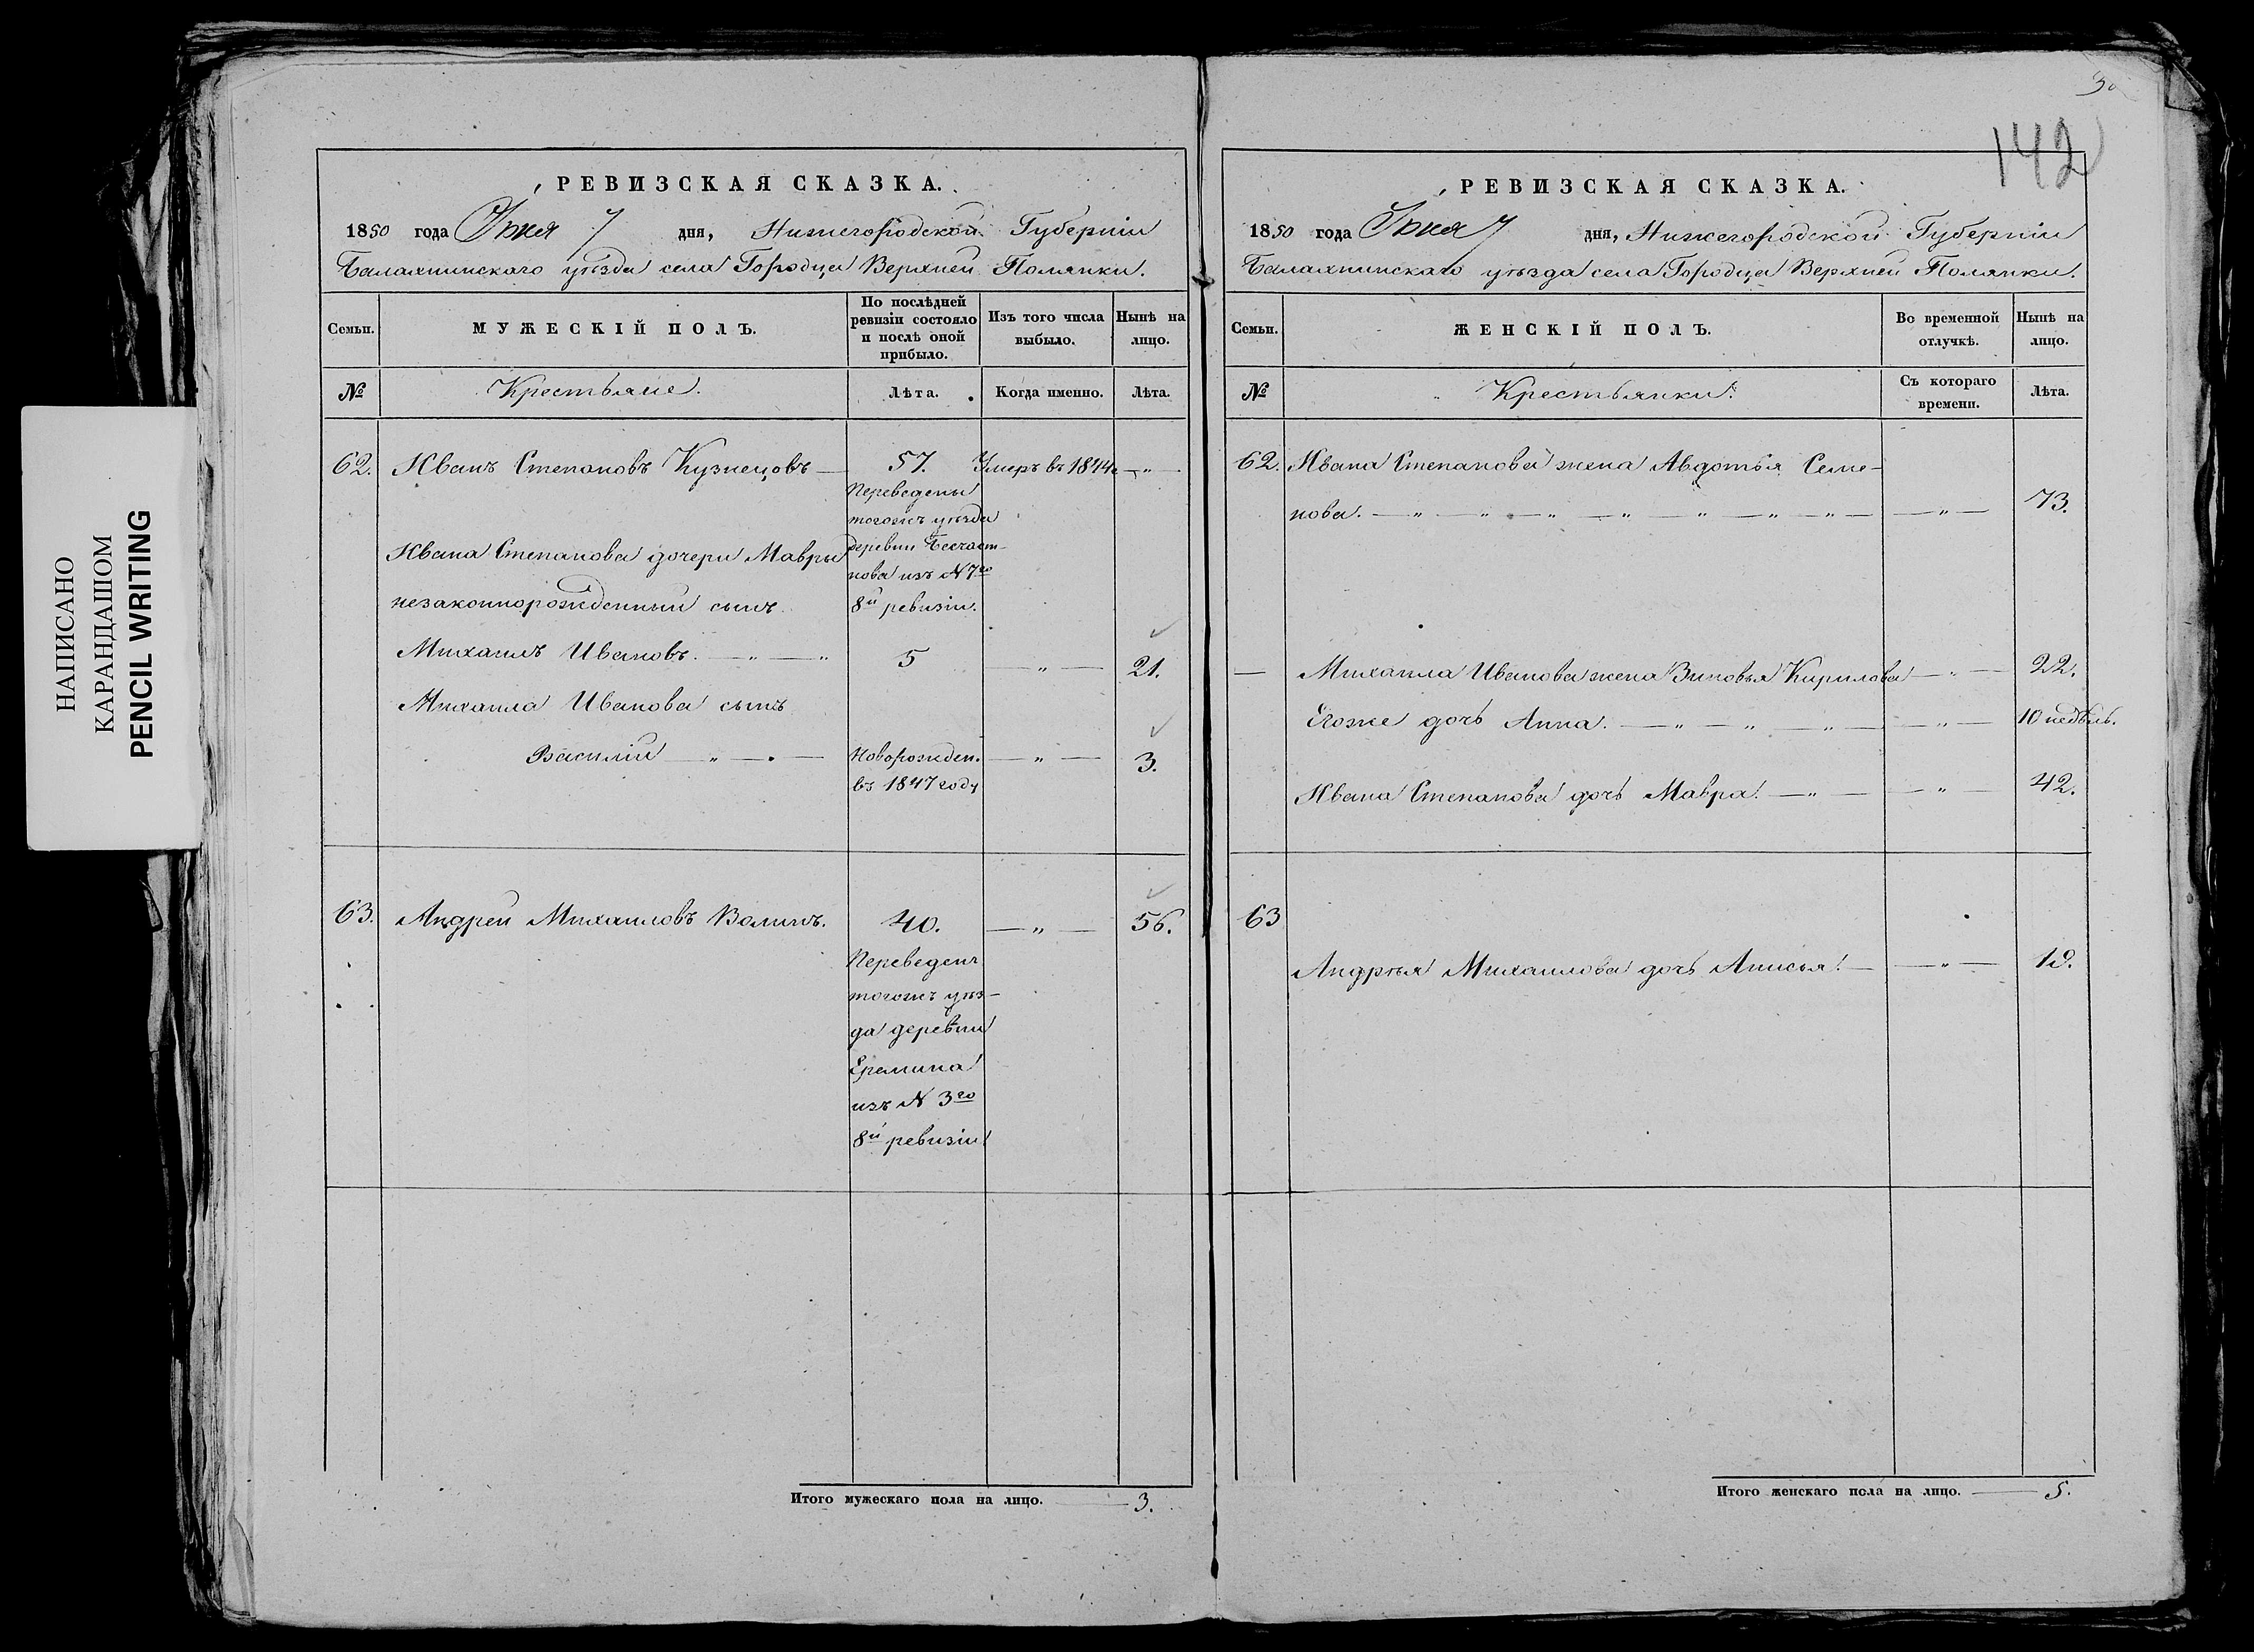 НАПИСАНО
КАРАНДАШОМ
PENCIL WRITING
РЕВИЗСКАЯ СКАЗКА.
1850 года Іюня 7 дня, Нижегородской Губерніи
Балахнинскаго уѣзда села Городца Верхней Полянки.
Семьи.
МУЖЕСКІЙ ПОЛЪ.
По послѣдней
ревизіи состояло
и послѣ оной
прибыло.
Изъ того числа
выбыло.
Нынѣ на
лицо.
№
Крестьяне.
Лѣта.
Когда именно.
Лѣта.
62. Иванъ Степановъ Кузнецовъ — 57. Умеръ въ 1844 — „ —
Переведены
тогожъ уѣзда
Ивана Степанова дочери Мавры деревни Бесчаст-
нова изъ N 7го
незаконнорожденный сынъ 8й ревизіи.
Михаилъ Ивановъ. — „ — „ 5 — „ — 21.
Михаила Иванова сынъ
Василій — „ — Новорожден. — „ — 3.
въ 1847 году
63. Андрей Михаиловъ Волинъ. 40. — „ — 56.
Переведенъ
тогожъ уѣз-
да деревни
Еремина
изъ N 3го
8й ревизіи
Итого мужескаго пола на лицо. — 3.
142
РЕВИЗСКАЯ СКАЗКА.
1850 года Іюня 7 дня, Нижегородской Губерніи
Балахнинскаго уѣзда села Городца Верхней Полянки.
Семьи.
ЖЕНСКІЙ ПОЛЪ.
Во временной
отлучкѣ.
Нынѣ на
лицо.
№
Крестьянки.
Съ котораго
времени.
Лѣта.
62. Ивана Степанова жена Авдотья Семе-
нова. — „ — „ — „ — „ — „ — „ — „ — — „ — 73.
— Михаила Иванова жена Зиновья Кирилова — „ — 22.
Егоже дочь Анна. — „ — „ — „ — — „ — 10 недѣль.
Ивана Степанова дочь Мавра. — „ — — „ — 42.
63
Андрея Михаилова дочь Анисья. — — „ — 19.
Итого женскаго пола на лицо. — 5.